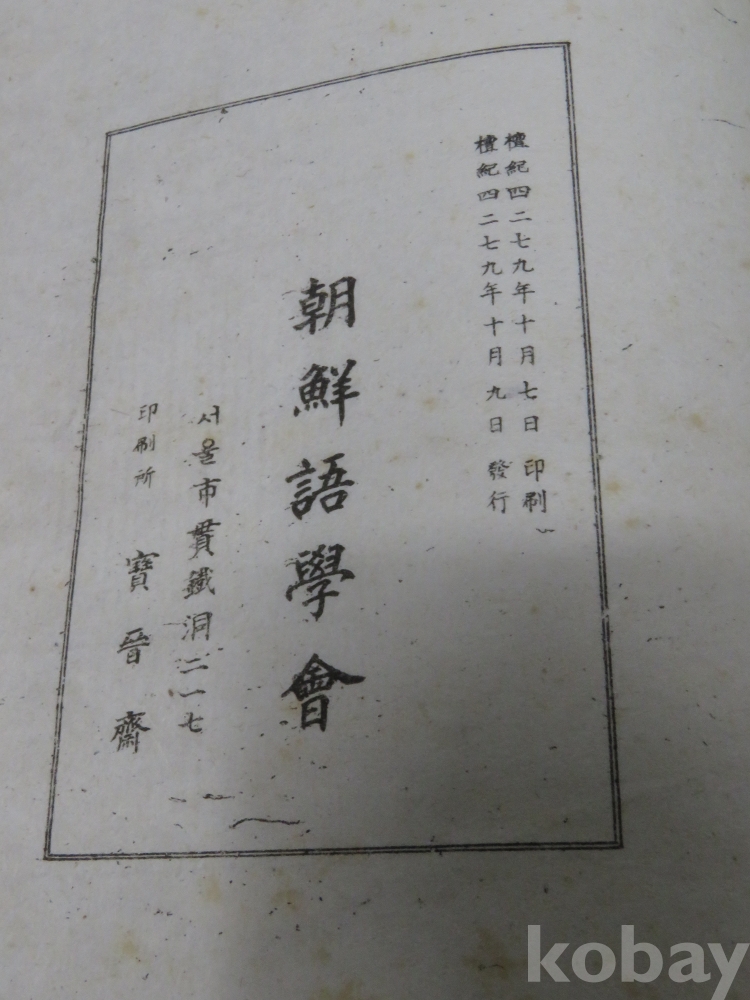 檀紀四二七九年十月七日 印刷
檀紀四二七九年十月九日 發行
朝鮮語學會
서울市貫鐵洞二一七
印刷所 寶晉齋
kobay